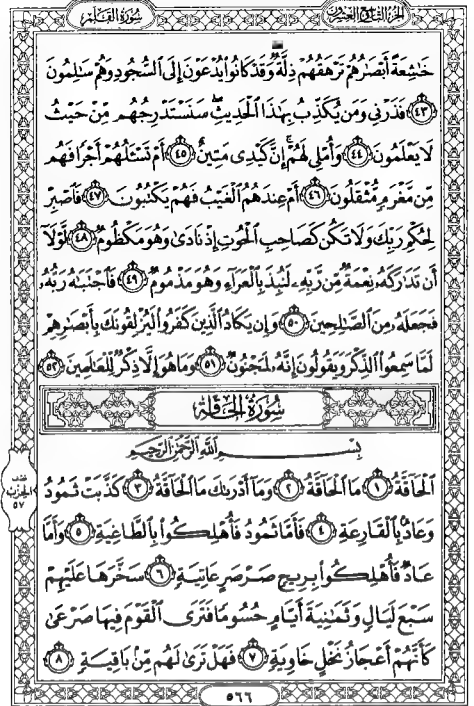 الجزء التاسع والعشرون
سورة القلم
خَٰشِعَةً أَبْصَٰرُهُمْ تَرْهَقُهُمْ ذِلَّةٌ ۖ وَقَدْ كَانُوا۟ يُدْعَوْنَ إِلَى ٱلسُّجُودِ وَهُمْ سَٰلِمُونَ
﴿٤٣﴾ فَذَرْنِى وَمَن يُكَذِّبُ بِهَٰذَا ٱلْحَدِيثِ ۖ سَنَسْتَدْرِجُهُم مِّنْ حَيْثُ
لَا يَعْلَمُونَ ﴿٤٤﴾ وَأُمْلِى لَهُمْ ۚ إِنَّ كَيْدِى مَتِينٌ ﴿٤٥﴾ أَمْ تَسْـَٔلُهُمْ أَجْرًا فَهُم
مِّن مَّغْرَمٍ مُّثْقَلُونَ ﴿٤٦﴾ أَمْ عِندَهُمُ ٱلْغَيْبُ فَهُمْ يَكْتُبُونَ ﴿٤٧﴾ فَٱصْبِرْ
لِحُكْمِ رَبِّكَ وَلَا تَكُن كَصَاحِبِ ٱلْحُوتِ إِذْ نَادَىٰ وَهُوَ مَكْظُومٌ ﴿٤٨﴾ لَّوْلَآ
أَن تَدَٰرَكَهُۥ نِعْمَةٌ مِّن رَّبِّهِۦ لَنُبِذَ بِٱلْعَرَآءِ وَهُوَ مَذْمُومٌ ﴿٤٩﴾ فَٱجْتَبَٰهُ رَبُّهُۥ
فَجَعَلَهُۥ مِنَ ٱلصَّٰلِحِينَ ﴿٥٠﴾ وَإِن يَكَادُ ٱلَّذِينَ كَفَرُوا۟ لَيُزْلِقُونَكَ بِأَبْصَٰرِهِمْ
لَمَّا سَمِعُوا۟ ٱلذِّكْرَ وَيَقُولُونَ إِنَّهُۥ لَمَجْنُونٌ ﴿٥١﴾ وَمَا هُوَ إِلَّا ذِكْرٌ لِّلْعَٰلَمِينَ ﴿٥٢﴾
سُورَةُ الْحَاقَّةِ
بِسْمِ ٱللَّهِ ٱلرَّحْمَٰنِ ٱلرَّحِيمِ
ٱلْحَآقَّةُ ﴿١﴾ مَا ٱلْحَآقَّةُ ﴿٢﴾ وَمَآ أَدْرَىٰكَ مَا ٱلْحَآقَّةُ ﴿٣﴾ كَذَّبَتْ ثَمُودُ
وَعَادٌۢ بِٱلْقَارِعَةِ ﴿٤﴾ فَأَمَّا ثَمُودُ فَأُهْلِكُوا۟ بِٱلطَّاغِيَةِ ﴿٥﴾ وَأَمَّا
عَادٌ فَأُهْلِكُوا۟ بِرِيحٍ صَرْصَرٍ عَاتِيَةٍ ﴿٦﴾ سَخَّرَهَا عَلَيْهِمْ
سَبْعَ لَيَالٍ وَثَمَٰنِيَةَ أَيَّامٍ حُسُومًا فَتَرَى ٱلْقَوْمَ فِيهَا صَرْعَىٰ
كَأَنَّهُمْ أَعْجَازُ نَخْلٍ خَاوِيَةٍ ﴿٧﴾ فَهَلْ تَرَىٰ لَهُم مِّنۢ بَاقِيَةٍ ﴿٨﴾
الحزب
٥٧
٥٦٦